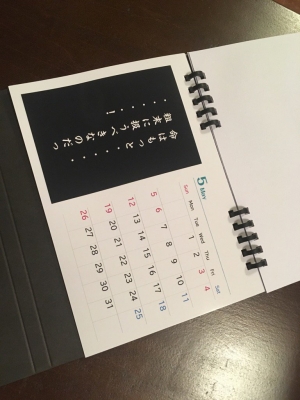 命はもっと・・・・・
粗末に扱うべきなのだっ
・・・・！
5 May
Sun Mon Tue Wed Thu Fri Sat
1 2 3 4
5 6 7 8 9 10 11
12 13 14 15 16 17 18
19 20 21 22 23 24 25
26 27 28 29 30 31